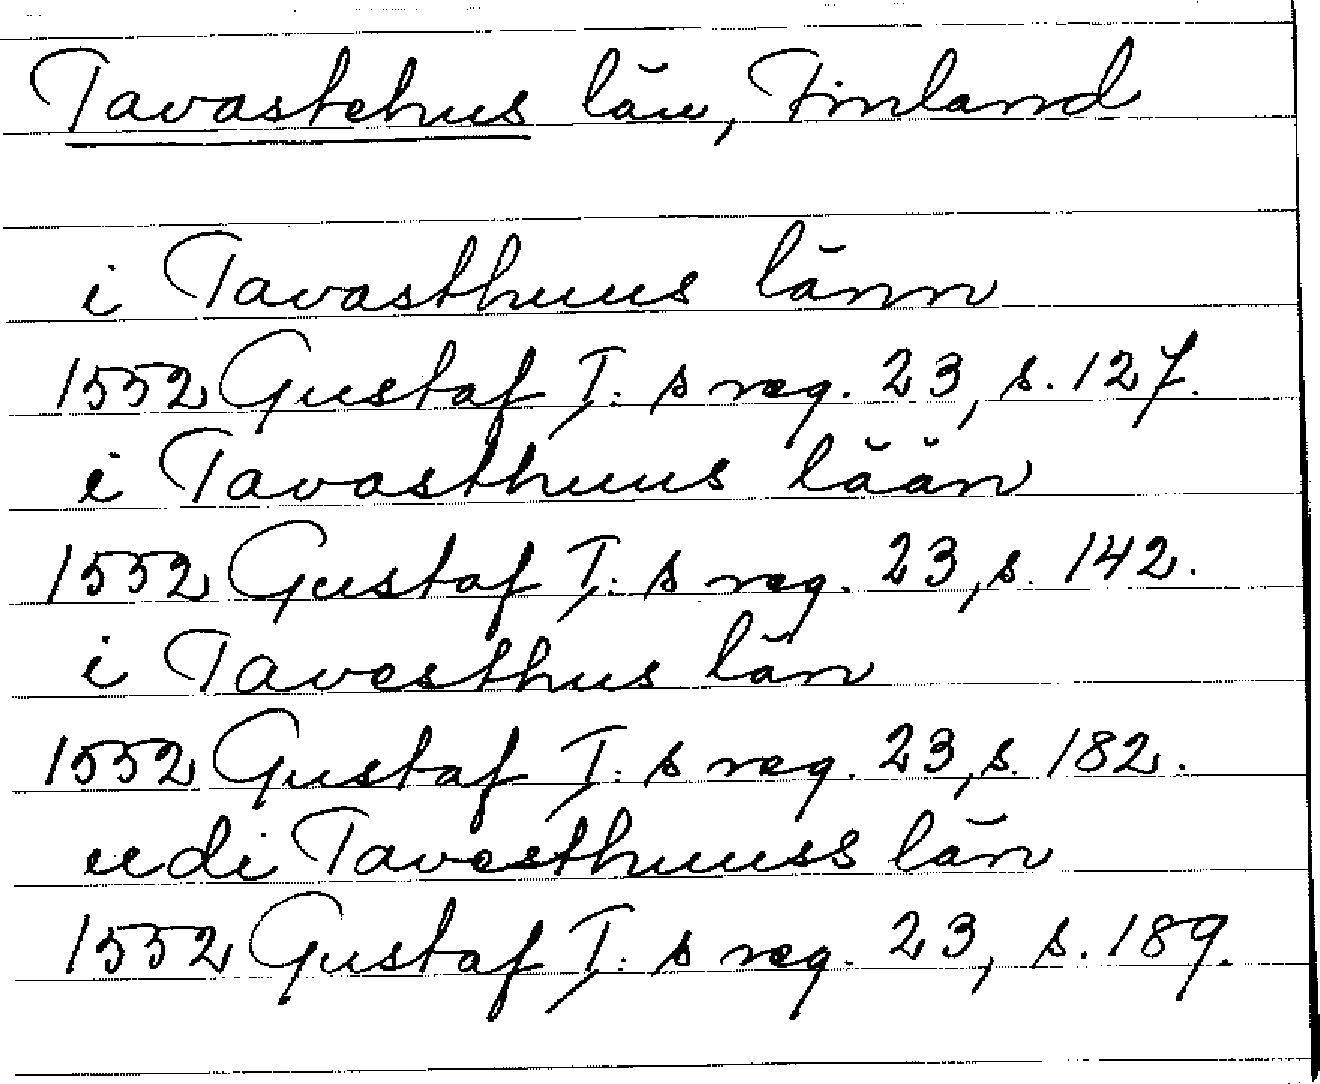 Tavastehus län, Finland
i Tavasthuus länn
1552 Gustaf I: s reg. 23, s. 127.
i Tavasthuus lään
1552 Gustaf I: s reg. 23, s. 142.
i Tavesthus län
1552 Gustaf I: s reg. 23, s. 182.
udi Tavesthuuss län
1552 Gustaf I: s reg. 23, s. 189.